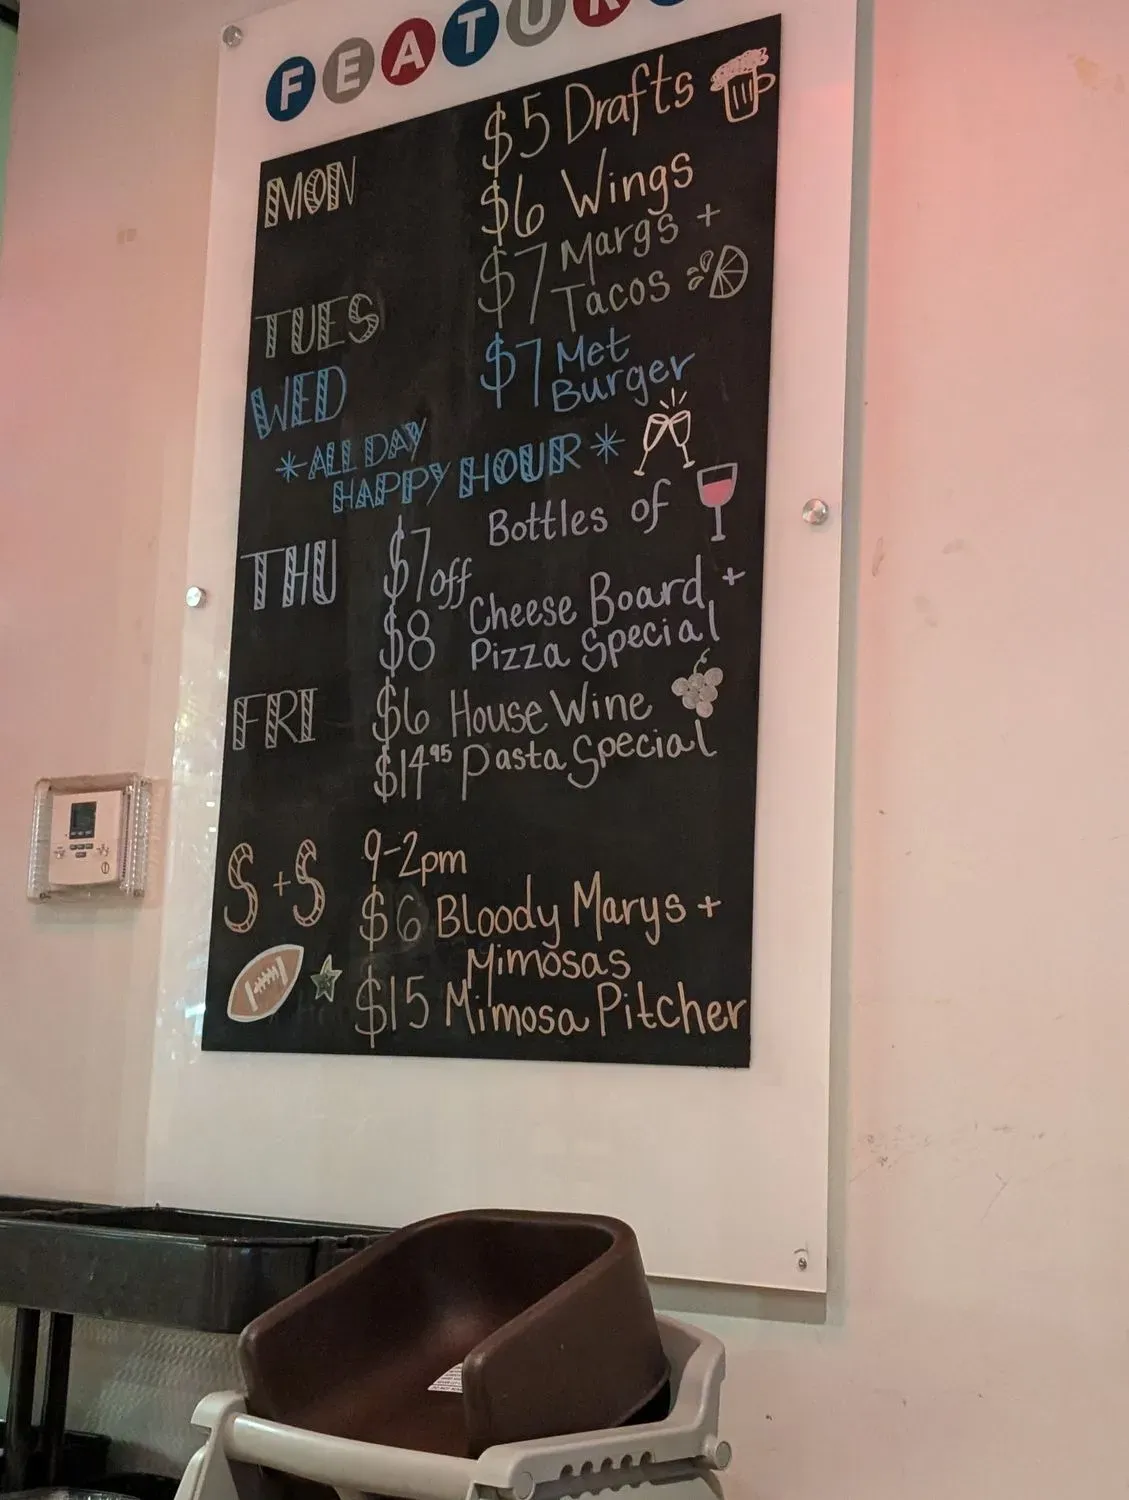 FEATURE
MON $5 Drafts
$6 Wings
TUES $7 Margs +
Tacos
WED $7 Met
Burger
*ALL DAY
HAPPY HOUR*
THU $7 off Bottles of
$8 Cheese Board +
Pizza Special
FRI $6 House Wine
$14.95 Pasta Special
S+S 9-2pm
$6 Bloody Marys +
Mimosas
$15 Mimosa Pitcher